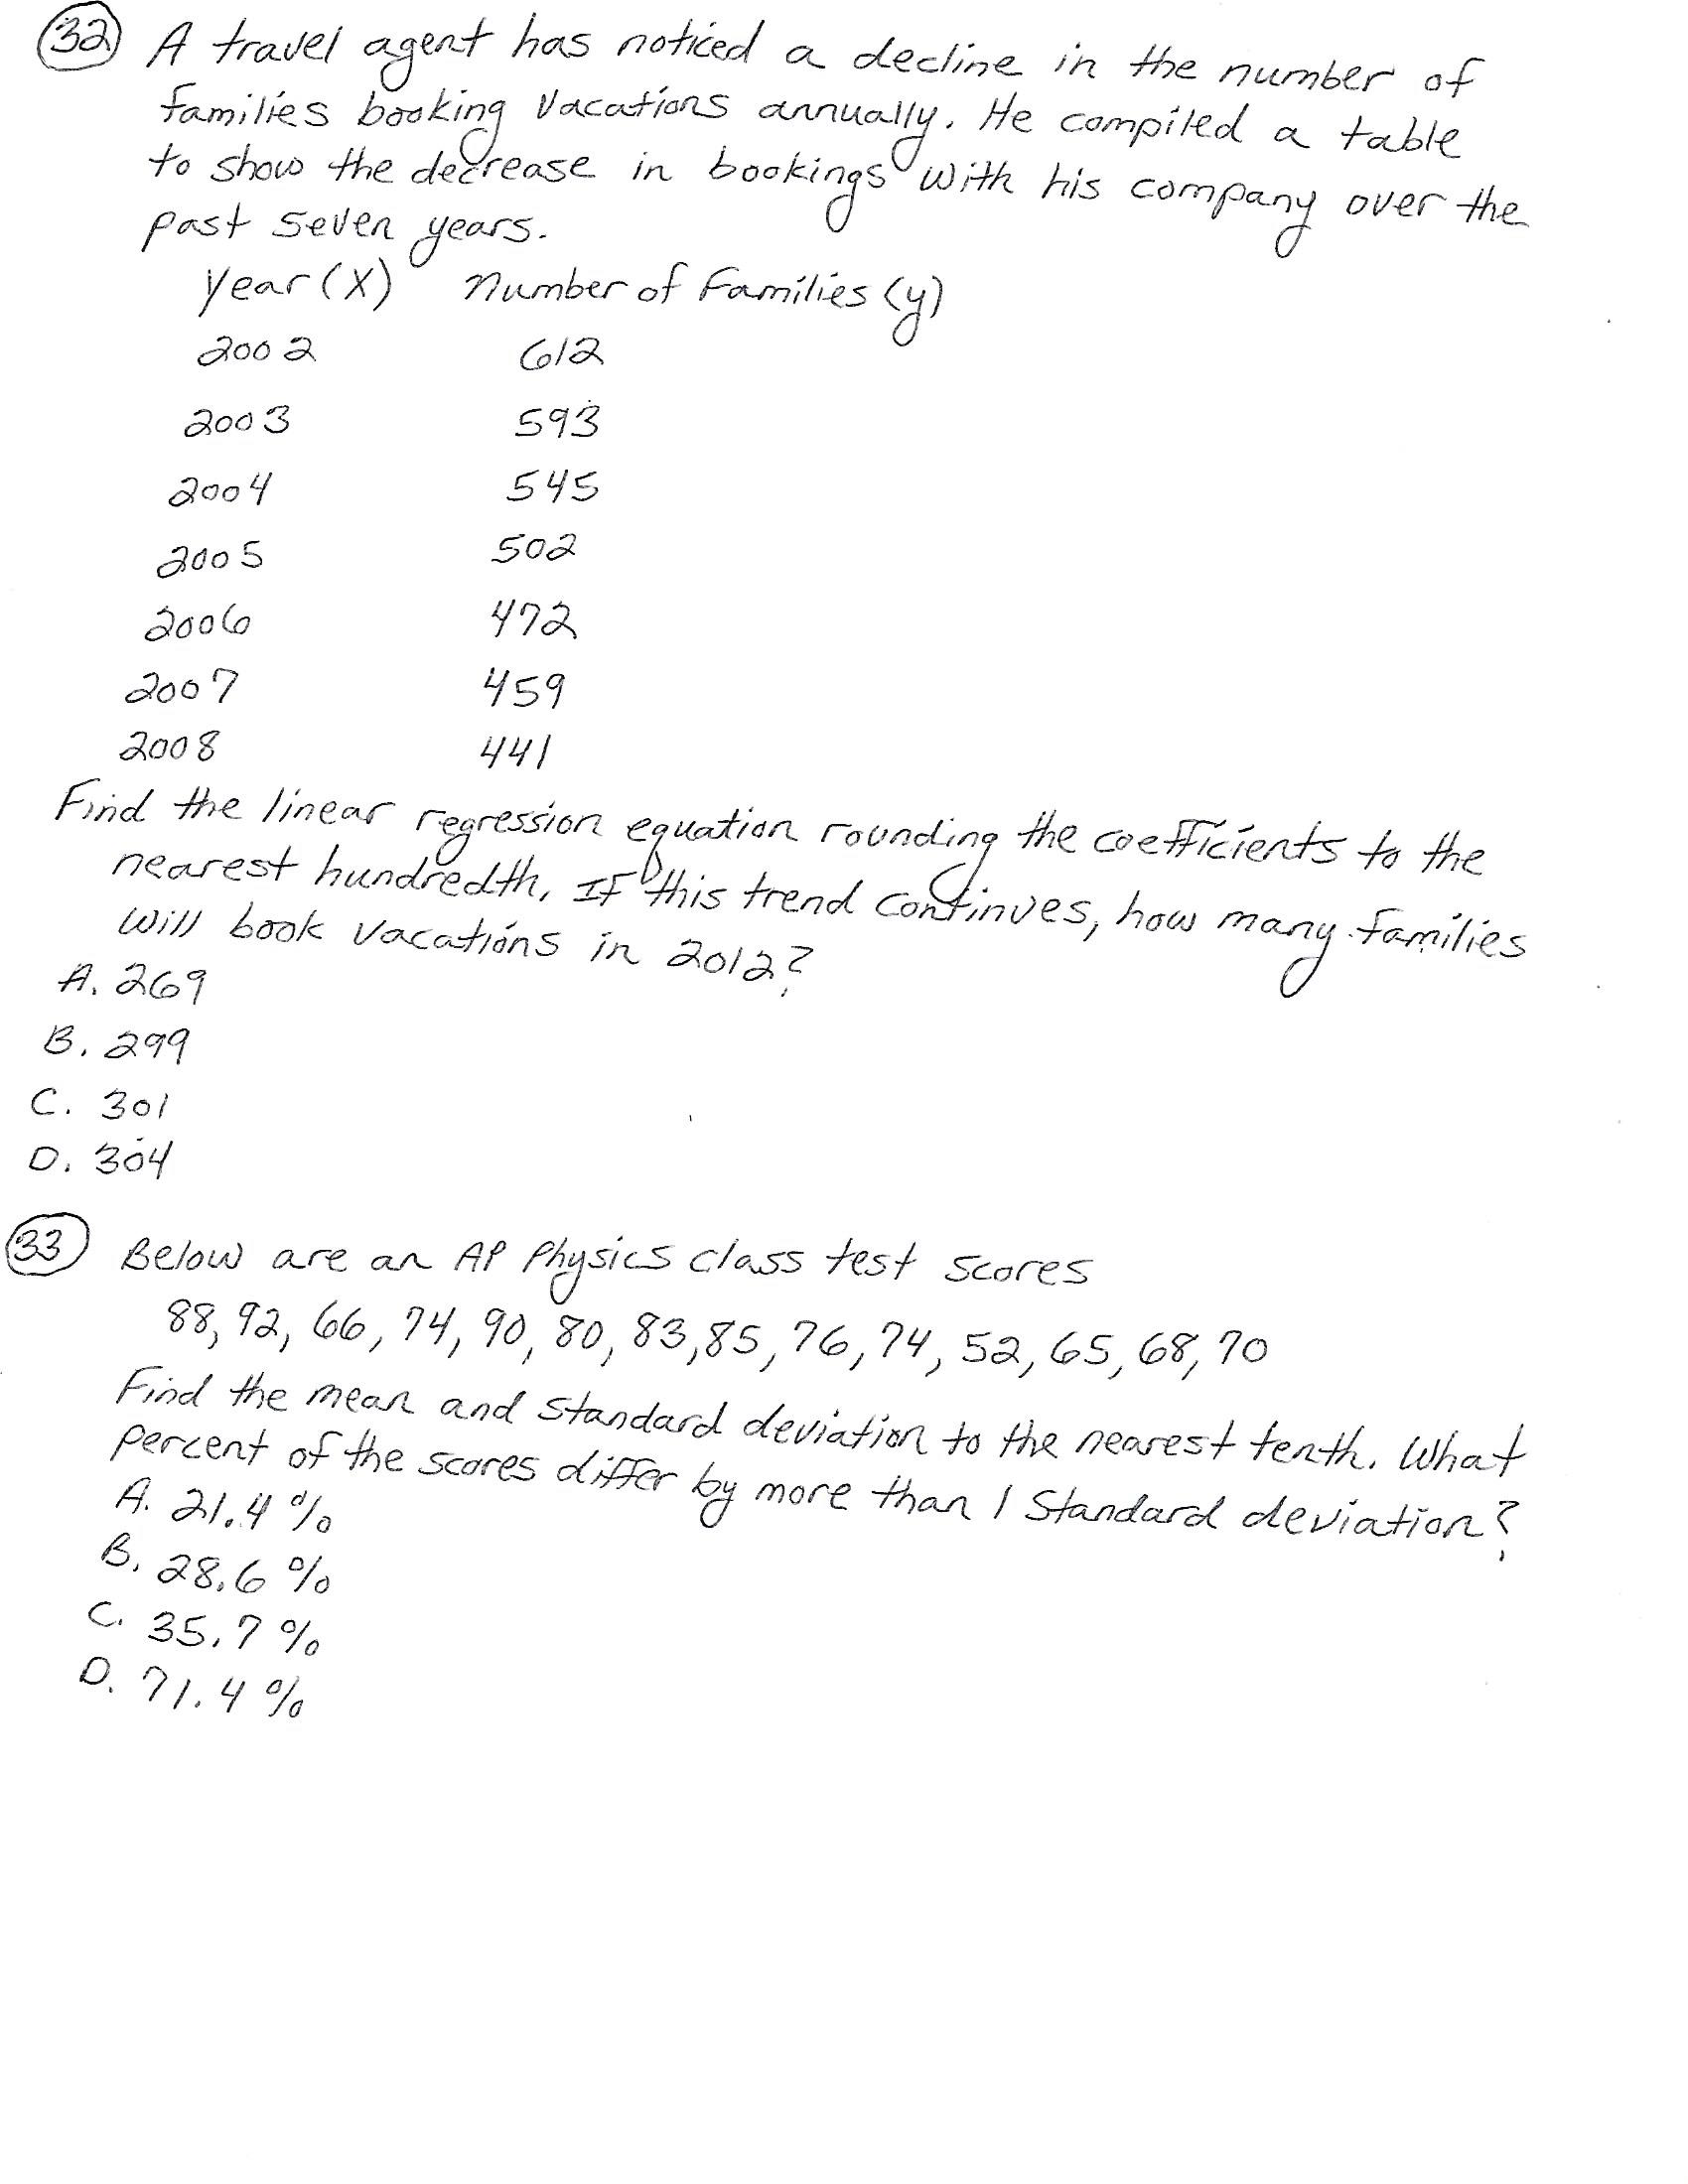 32 A travel agent has noticed a decline in the number of
families booking vacations annually. He compiled a table
to show the decrease in bookings with his company over the
past seven years.
Year (X) Number of Families (y)
2002 612
2003 593
2004 545
2005 502
2006 472
2007 459
2008 441
Find the linear regression equation rounding the coefficients to the
nearest hundredth. If this trend continues, how many families
will book vacations in 2012?
A. 269
B. 299
C. 301
D. 304
33 Below are an AP Physics class test scores
88, 92, 66, 74, 90, 80, 83, 85, 76, 74, 52, 65, 68, 70
Find the mean and standard deviation to the nearest tenth. What
percent of the scores differ by more than 1 standard deviation?
A. 21.4 %
B. 28.6 %
C. 35.7 %
D. 71.4 %